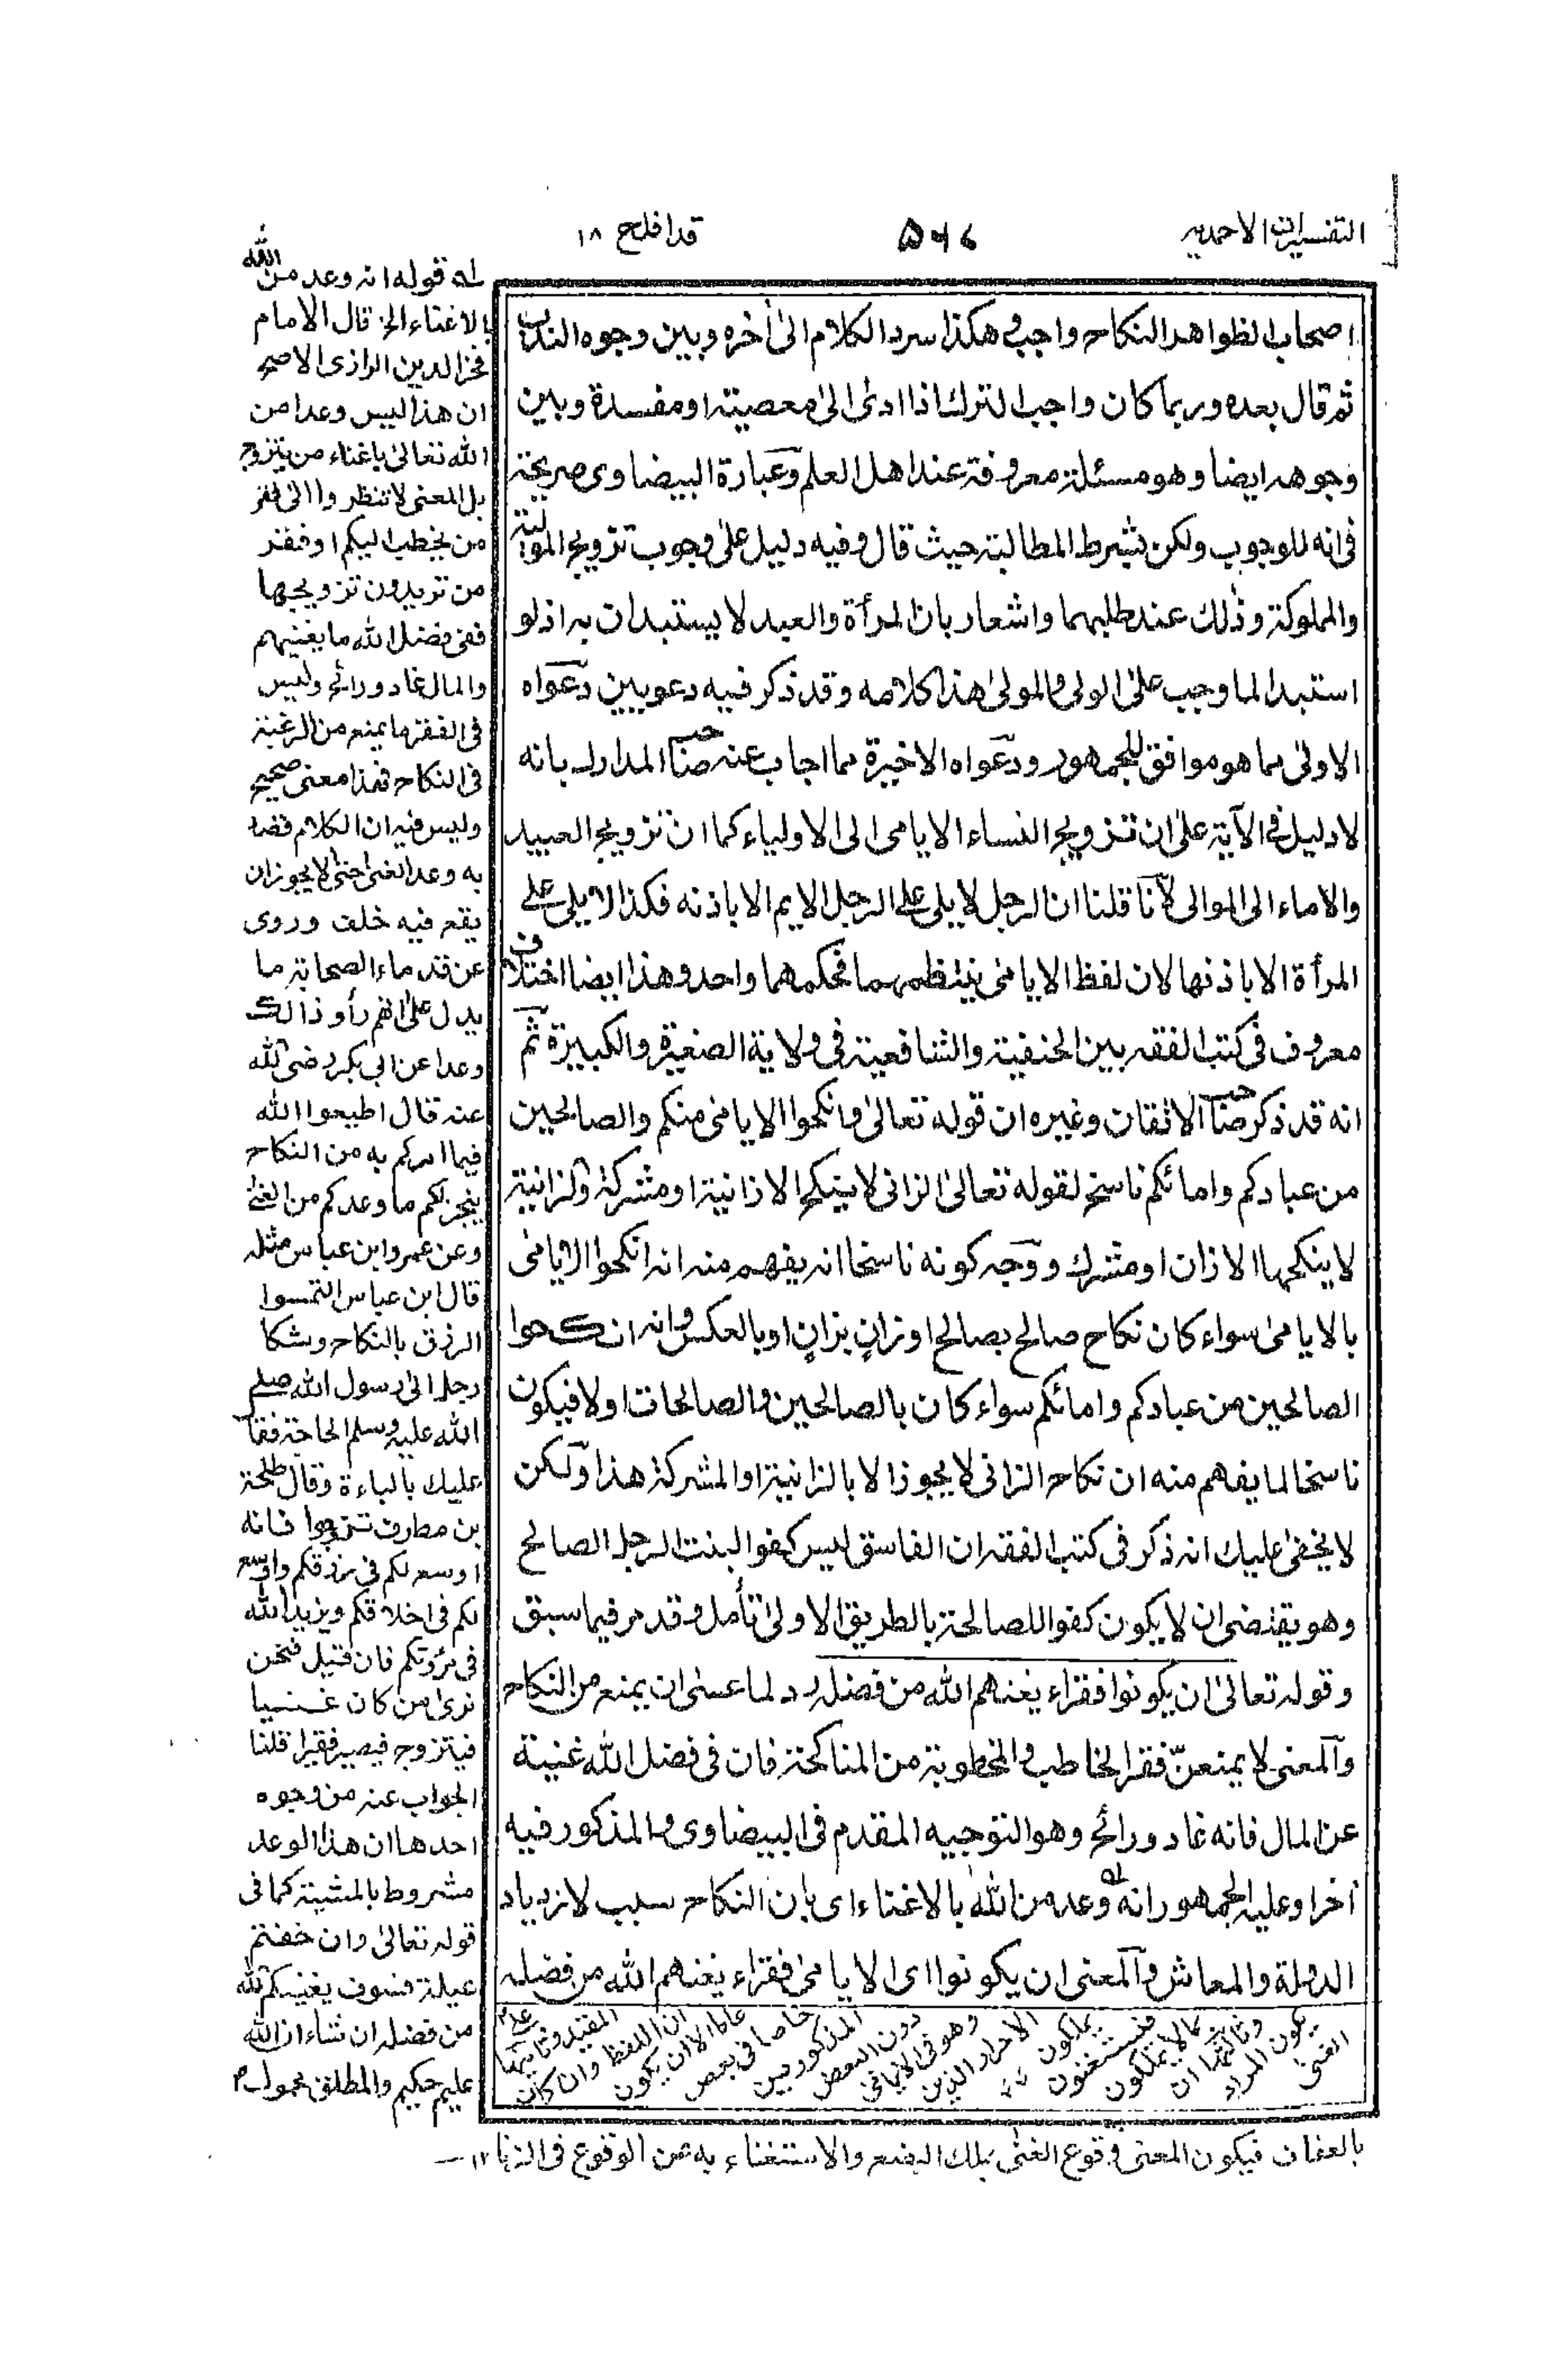 التفسيرات الاحمديه
٥٦٦
قد افلح ١٨
اصحاب الظواهر النكاح واجب وهكذا سرد الكلام الى أخره وبين وجوه الندب
ثم قال بعده وربما كان واجب الترك اذا ادى الى معصية او مفسدة وبين
وجوهه ايضا وهو مسئلة معروفة عند اهل العلم وعبارة البيضاوى صريحة
فى انه للوجوب ولكن بشرط المطالبة حيث قال وفيه دليل على وجوب تزويج المولية
والمملوكة وذلك عند طلبهما واشعار بان المرأة والعبد لا يستبدان به اذ لو
استبدا لما وجب على الولى والمولى هذا كلامه وقد ذكر فيه دعويين دعواه
الاولى مما هو موافق للجمهور ودعواه الاخيرة مما اجاب عنه صاحب المدارك بانه
لا دليل فى الآية على ان تزويج النساء الايامى الى الاولياء كما ان تزويج العبيد
والاماء الى الموالى لأنا قلنا ان الرجل لا يلى على الرجل الايم الا باذنه فكذا لا يلى على
المرأة الا باذنها لان لفظ الايامى ينتظمهما فحكمهما واحد وهذا ايضا اختلاف
معروف فى كتب الفقه بين الحنفية والشافعية فى ولاية الصغيرة والكبيرة ثم
انه قد ذكر صاحب الاتقان وغيره ان قوله تعالى وانكحوا الايامى منكم والصالحين
من عبادكم وامائكم ناسخ لقوله تعالى الزانى لا ينكح الا زانية او مشركة والزانية
لا ينكحها الا زان او مشرك ووجه كونه ناسخا انه يفهم منه انه انكحوا الايامى
بالايامى سواء كان نكاح صالح بصالح او زانٍ بزانٍ او بالعكس وانه انكحوا
الصالحين من عبادكم وامائكم سواء كان بالصالحين والصالحات او لا فيكون
ناسخا لما يفهم منه ان نكاح الزانى لا يجوز الا بالزانية او المشركة هذا ولكن
لا يخفى عليك انه ذكر فى كتب الفقه ان الفاسق ليس كفوا لبنت الرجل الصالح
وهو يقتضى ان لا يكون كفوا للصالحة بالطريق الاولى تأمل وقد مر فيما سبق
وقوله تعالى ان يكونوا فقراء يغنهم الله من فضله رد لما عسى ان يمنع من النكاح
والمعنى لا يمنعنّ فقر الخاطب والمخطوبة من المناكحة فان فى فضل الله غنية
عن المال فانه غاد ورائح وهو التوجيه المقدم فى البيضاوى والمذكور فيه
أخرا وعليه الجمهور انه وعد من الله بالاغناء اى بان النكاح سبب لازدياد
الدولة والمعاش والمعنى ان يكونوا اى الايامى فقراء يغنهم الله من فضله
له قوله انه وعد من الله
بالاغناء الخ قال الامام
فخر الدين الرازى الاصح
ان هذا ليس وعدا من
الله تعالى باغناء من يتزوج
بل المعنى لا تنظروا الى فقر
من يخطب اليكم او فقر
من تريدون تزويجها
ففى فضل الله ما يغنيهم
والمال غاد ورائح وليس
فى الفقر ما يمنع من الرغبة
فى النكاح فهذا معنى صحيح
وليس فيه ان الكلام قصد
به وعد الغنى حتى لا يجوز ان
يقع فيه خلف وروى
عن قدماء الصحابة ما
يدل على انهم رأوا ذالك
وعدا عن ابى بكر رضى الله
عنه قال اطيعوا الله
فيما امركم به من النكاح
ينجز لكم ما وعدكم من الغنى
وعن عمر وابن عباس مثله
قال ابن عباس التمسوا
الرزق بالنكاح وشكا
رجل الى رسول الله صلى
الله عليه وسلم الحاجة فقال
عليك بالباءة وقال طلحة
بن مطرف تزوجوا فانه
اوسع لكم فى رزقكم واوسع
لكم فى اخلاقكم ويزيد الله
فى مروتكم فان قيل فنحن
نرى من كان غنيا
فيتزوج فيصير فقيرا قلنا
الجواب عنه من وجوه
احدها ان هذا الوعد
مشروط بالمشية كما فى
قوله تعالى وان خفتم
عيلة فسوف يغنيكم الله
من فضله ان شاء ان الله
عليم حكيم والمطلق محمول
على
المقيد وثانيها
ان اللفظ وان كان
عاما الا ان يكون
خاصا فى بعض
المذكورين
دون البعض
وهو فى الايامى
الاحرار الذين
يملكون
فيستغنون
بما لا يملكون
وثالثها ان
يكون المراد
الغنى
بالعفاف فيكون المعنى وقوع الغنى بملك البضع والاستغناء به عن الوقوع فى الزنا ١٢